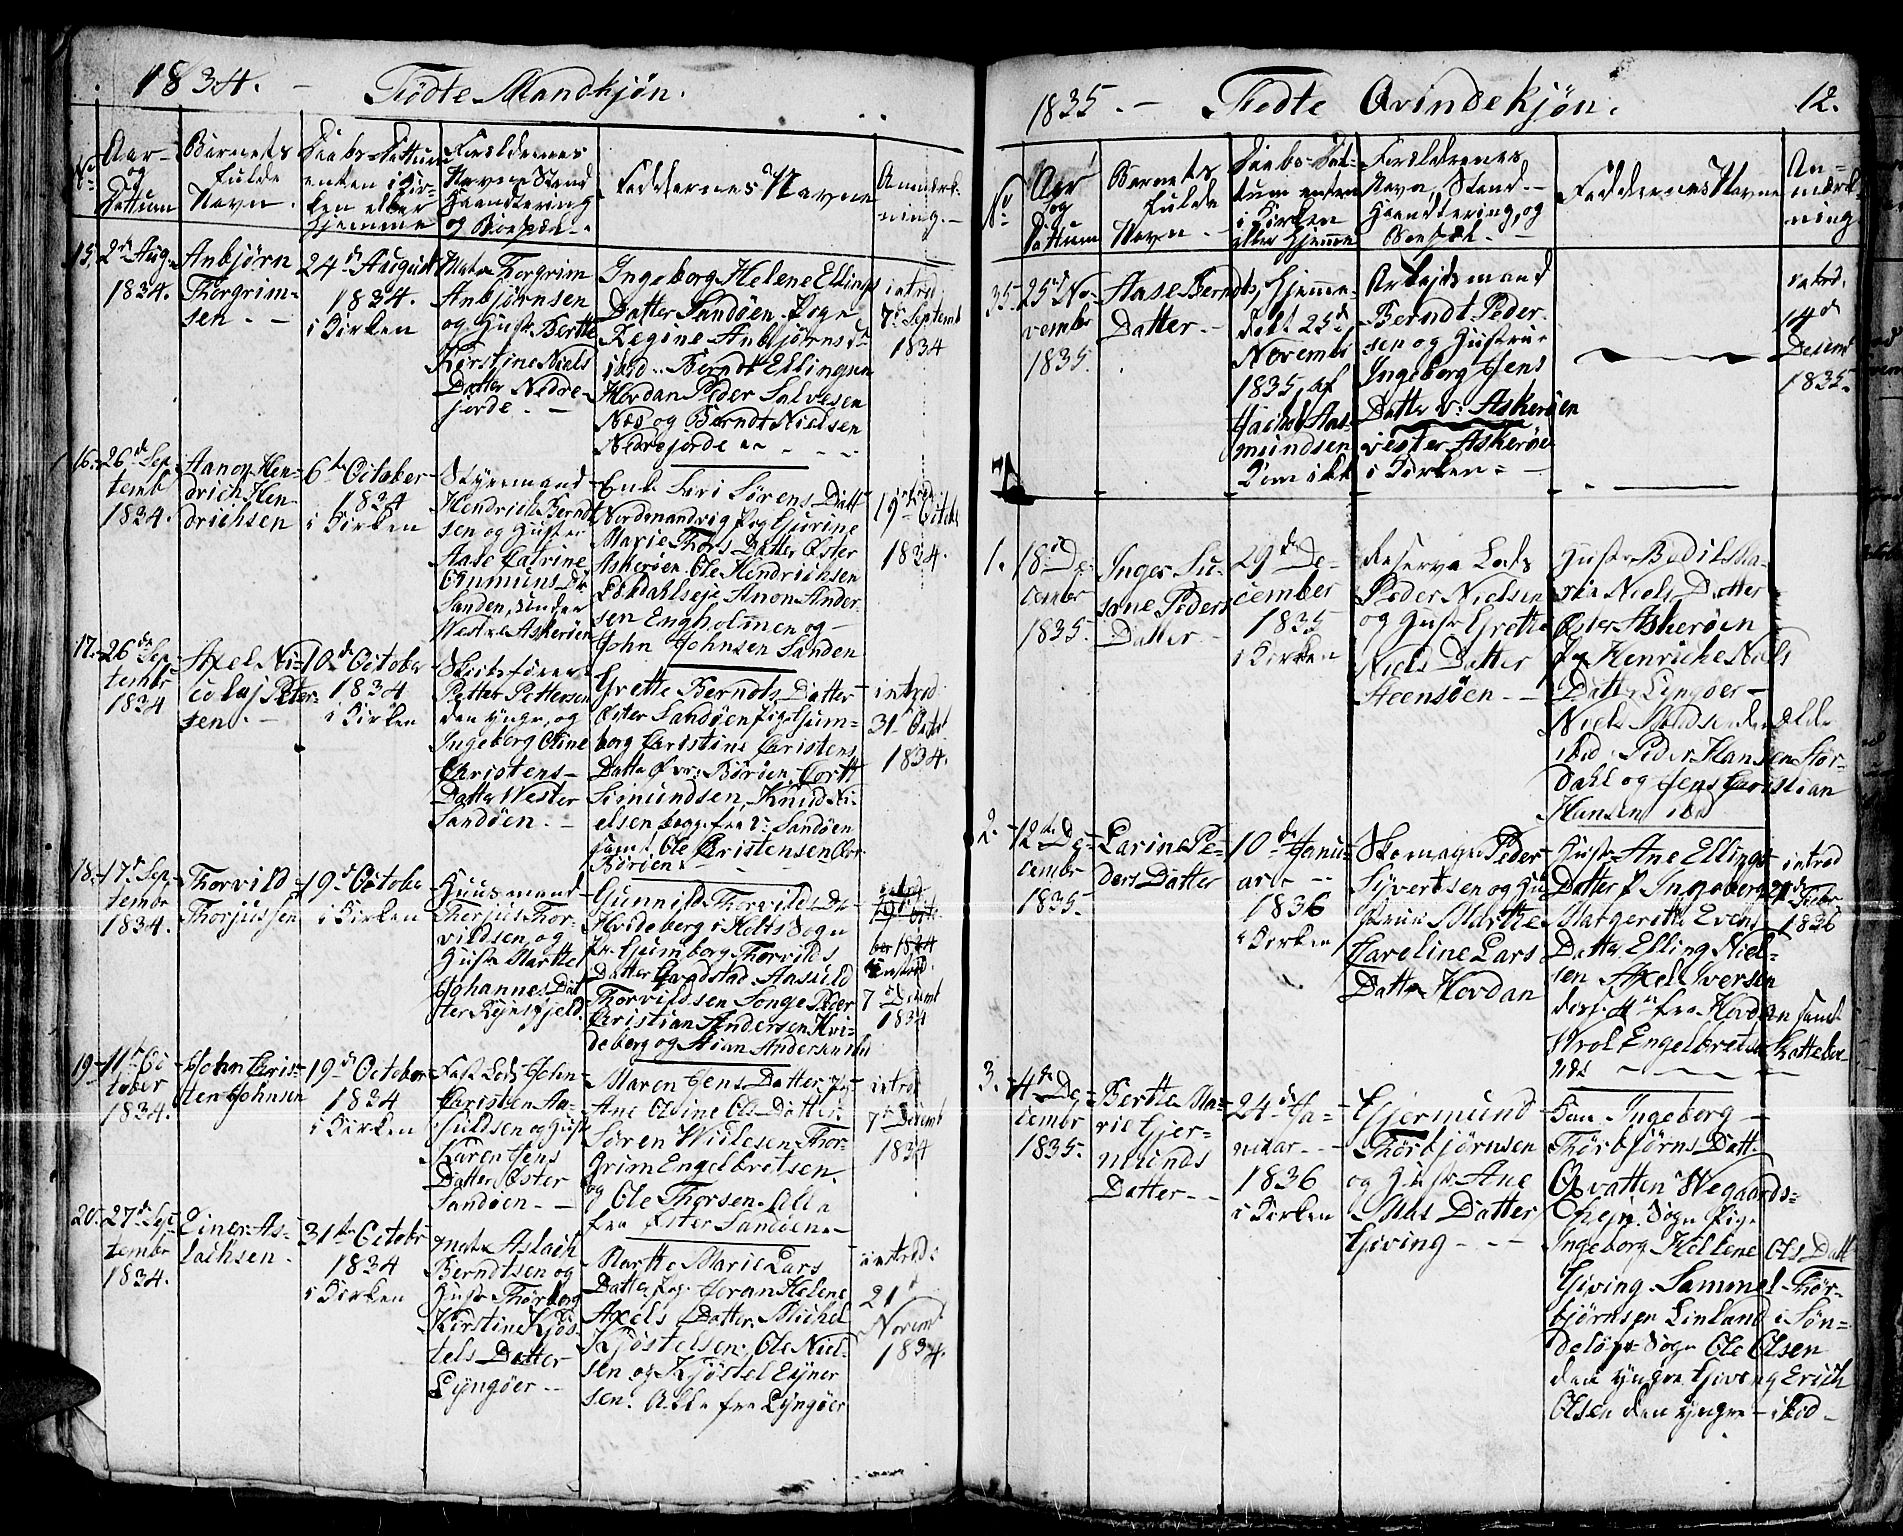 1834. - Födte Mandkjøn.
No
Aar og Dattum
Barnets fulde Navn.
Daabs-Dattum enten i Kirken eller hjemme
Forældrenes Navn, Stand Haandtering og Boepæl.
Faddernes Navne
Anmærkning.
15.
2d Aug.
1834.
Anbjørn
Thorgrim-
sen
24d August
1834.
i Kirken
Thorgrim
Anbjørnsen
og Hust. Berthe
Kirstine Niels
Datter Nedre
fjorde.
Ingeborg Helene Ellings
Datter Sandöen Pige
Regine Anbjørns
ibid Berndt Ellingsen
Hovdan Peder Salvesen
Næs og Berndt Nielsen
Nedrefjorde
introd
7d Septemb
1834
16.
26d Sep-
temb
1834.
Aanon Hen-
drich Hen-
drichsen
6te October
1834
i Kirken
Styrmand
Hendrich Berndt
sen og Hustrue
Aase Catrine
Sanden, under
Westre Askerøen
Enke Siri Sörens Datt
Nordmandvig Pige Gjurine
Marie Thors Datter Øster
Askerøen Ole Hendrichsen
Anon Ander
sen Engholmen og
John Johnsen Sanden
introd
19d Octobr
1834.
17.
26de Sep-
tembr
1834
Axel Ni-
colaj Peter-
sen.
10d October
1834
i Kirken
Skibsfører
Petter Pettersen
den yngre, og
Ingeborg Oline
Christens
Datter Wester
Sandöen.
Grette Berndts Datter
Øster Sandöen Pige Gum-
borg Christine Christens
Datter Børöen, Cortt
Simundsen, Knud Ni-
elsen begge fra V: Sandöen
samt Ole Christensen
Börøen.
introd
31d Octbr
1834.
18.
17d Sep-
tembr
1834.
Thorvild
Thorjussen
19d October
i Kirken
Huusmand
Thorjus Thor-
vildsen og
Hustr Marthe
Johannes Dat
ter Rejersfjeld.
Gunnild Thorvilds Dr
Hvideberg i Holts Sogn
Pr. Gumborg Thorvilds
Datter Aasuld
Thorvildsen Songe Peder
Christian Andersen Hvi-
deberg og Stian Andersen ibd
introd.
7d Decemb
1834
19.
11d Oc
tober
1834.
John Chris-
ten Johnsen
19d October
1834
i Kirken
Fast Lods John
Christen Aa-
suldsen og Hustr
Karen Jens
Datter Øster
Sandöen
Maren Jens Datter, Pig
Ane Oline Ols Datter
Sören Willesen Thor-
grim Engelbretsen
og Ole Thorsen. Alle
fra Øster Sandöen
introd
7d Decemb
1834
20.
27d Sep
tembr
1834.
Einer As-
lachsen.
31te Octobr
1834
i Kirken
Aslach
Berndtsen og
Hustr Thorborg
Kirstine Kjøs-
tels Datter
Lyngøer
Marthe Marie Lars
Datter, Pige Joran Helene
Axels Datter, Michel
Kjöstelsen, Ole Niel-
sen og Kjöstel Ejner
sen. Alle fra Lyngøer
introd:
21d
Novemb
1834.
1835. - Födte Qvindekjön.
12.
No
Aar og Dattum
Barnets fulde Navn.
Daabs-Dattum enten i Kirken eller hjemme
Forældrenes Navn, Stand Haandtering, og Boepæl.
Faddernes Navne
Anmærkning
35.
25d No-
vembr
1835.
Aase Berndts
Datter
Hjemme-
døbt 25d
Novembr
1835, af
Aas-
mundsen
Kom ikke
Arbejdsmand
Berndt Peder
sen og Hustrue
Ingeborg Jens
Datter v: Askerøen
vester Askerøe
i Kirken
introd.
14d
Decemb
1835.
1.
18d De-
cembr
1835.
Inger Su-
sane Peders
Datter
29d De-
cember
1835
i Kirken
Reserve Lods
Peder Nielsen
og Hustr Grette
Niels Datter
Steensöen
Hustr Bodil Ma-
ria Niels Datter
Øster Askerøen
Pig Henriche Niels
Datter Lyngøer
Niels Madsen den ælde
ibid Peder Hansen Stør-
dahl og Jens Christian
Hansen ibd
2.
12te De-
cembr
1835.
Larine Pe-
ders Datter
10d Janu-
ar
1836
i Kirken
Skomager Peder
Syvertsen og Hu
struе Marthe
Karoline Lars
Datter Hovdan
Hustr Ane Ellings
Datter P Ingeborg
Margrette Evens
Datter, Elling Niel-
sen Axel Iversen
fra Hovdan samt
Wrol Engelbretsen
introd
21d Febr
1836
3.
4d De-
cembr
1835.
Berthe Ma-
rie Gjer-
munds
Datter
24d Ja-
nuar
1836
i Kirken
Gjermund
Thorbjørnsen
og Hustr Ane
Mads Datter
Giving
Kone Ingeborg
Thörbjørns Datt.
Qvatten Wegaards-
Ingeborg Hellene Ols Datt
Giving Sammel Thör-
björnsen Linland i Sön-
delöws Sogn Ole Olsen
den yngre Giving Erich
Olsen den yngre ibid